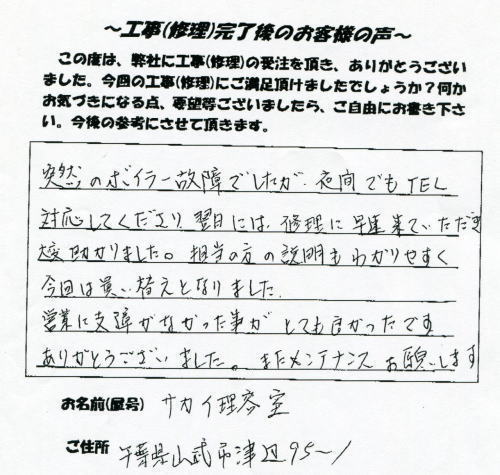 ～工事(修理)完了後のお客様の声～
この度は、弊社に工事(修理)の受注を頂き、ありがとうござい
ました。今回の工事(修理)にご満足頂けましたでしょうか？何か
お気づきになる点、要望等ございましたら、ご自由にお書き下さ
い。今後の参考にさせて頂きます。
突然のボイラー故障でしたが、夜間でもTEL
対応してくださり翌日には、修理に早速来ていただき
大変助かりました。担当の方の説明もわかりやすく
今回は買い替えとなりました。
営業に支障がなかった事がとても良かったです
ありがとうございました。またメンテナンスお願いします
お名前(屋号) サカイ理容室
ご住所 千葉県山武市津辺95～1